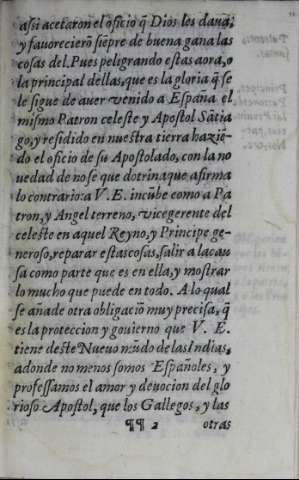 assi acetaron el oficio q̃ Dios les daua;
y fauorecierõ siẽpre de buena gana las
cosas del. Pues peligrando estas aora, o
la principal dellas, que es la gloria q̃ se
le sigue de auer venido a España el
mismo Patron celeste y Apostol Sãtia
go, y residido en nuestra tierra haziẽ-
do el oficio de su Apostolado, con la no
uedad de no se que dotrina que afirma
lo contrario: a V. E. incũbe como a Pa
tron, y Angel terreno, vicegerente del
celeste en aquel Reyno, y Principe ge-
neroso, reparar estas cosas, salir a la cau
sa como parte que es en ella, y mostrar
lo mucho que puede en todo. A lo qual
se añade otra obligaciõ muy precisa, q̃
es la proteccion y gouierno que V. E.
tiene deste Nueuo mũdo de las Indias,
adonde no menos somos Españoles, y
professamos el amor y deuocion del glo
rioso Apostol, que los Gallegos, y las
¶¶ 2 otras